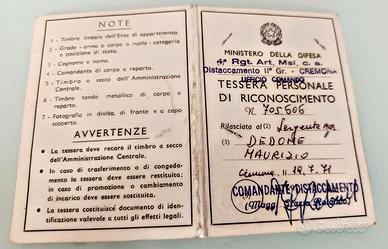 NOTE
1 - Timbro lineare dell'Ente di appartenenza.
2 - Grado - arma e corpo o ruolo - categoria
e posizione di stato.
3 - Cognome e nome.
4 - Comandante di corpo o reparto.
5 - Timbro a secco dell'Amministrazione
Centrale.
6 - Timbro tondo metallico di corpo o
reparto.
7 - Fotografia in divisa, di fronte e a capo
scoperto.
AVVERTENZE
● La tessera deve recare il timbro a secco
dell'Amministrazione Centrale.
● In caso di trasferimento o di congeda-
mento la tessera deve essere restituita;
in caso di promozione o cambiamento
di incarico deve essere sostituita.
● La tessera costituisce documento di iden-
tificazione valevole a tutti gli effetti legali.
MINISTERO DELLA DIFESA
4° Rgt. Art. Msl. c. a.
Distaccamento II° Gr. - CREMONA
UFFICIO COMANDO
TESSERA PERSONALE
DI RICONOSCIMENTO
N. 705606
Rilasciata al (2) Sergente
(3) DEDONE
MAURIZIO
Cremona, li 18.7.71
COMANDANTE DISTACCAMENTO
subito.it